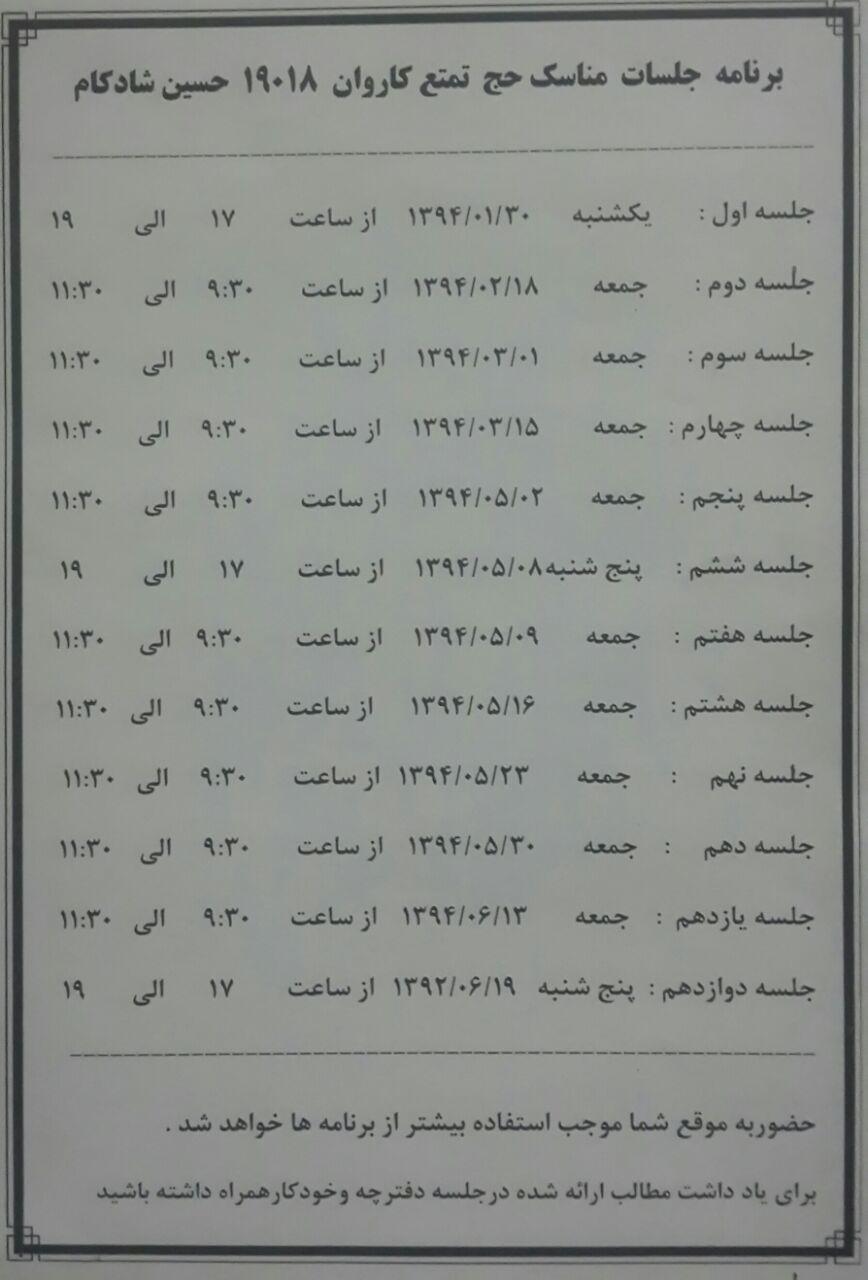 برنامه جلسات مناسک حج تمتع کاروان ۱۹۰۱۸ حسین شادکام
جلسه اول : یکشنبه ۱۳۹۴/۰۱/۳۰ از ساعت ۱۷ الی ۱۹
جلسه دوم : جمعه ۱۳۹۴/۰۲/۱۸ از ساعت ۹:۳۰ الی ۱۱:۳۰
جلسه سوم : جمعه ۱۳۹۴/۰۳/۰۱ از ساعت ۹:۳۰ الی ۱۱:۳۰
جلسه چهارم : جمعه ۱۳۹۴/۰۳/۱۵ از ساعت ۹:۳۰ الی ۱۱:۳۰
جلسه پنجم : جمعه ۱۳۹۴/۰۵/۰۲ از ساعت ۹:۳۰ الی ۱۱:۳۰
جلسه ششم : پنج شنبه ۱۳۹۴/۰۵/۰۸ از ساعت ۱۷ الی ۱۹
جلسه هفتم : جمعه ۱۳۹۴/۰۵/۰۹ از ساعت ۹:۳۰ الی ۱۱:۳۰
جلسه هشتم : جمعه ۱۳۹۴/۰۵/۱۶ از ساعت ۹:۳۰ الی ۱۱:۳۰
جلسه نهم : جمعه ۱۳۹۴/۰۵/۲۳ از ساعت ۹:۳۰ الی ۱۱:۳۰
جلسه دهم : جمعه ۱۳۹۴/۰۵/۳۰ از ساعت ۹:۳۰ الی ۱۱:۳۰
جلسه یازدهم : جمعه ۱۳۹۴/۰۶/۱۳ از ساعت ۹:۳۰ الی ۱۱:۳۰
جلسه دوازدهم : پنج شنبه ۱۳۹۲/۰۶/۱۹ از ساعت ۱۷ الی ۱۹
حضوربه موقع شما موجب استفاده بیشتر از برنامه ها خواهد شد .
برای یاد داشت مطالب ارائه شده درجلسه دفترچه وخودکارهمراه داشته باشید